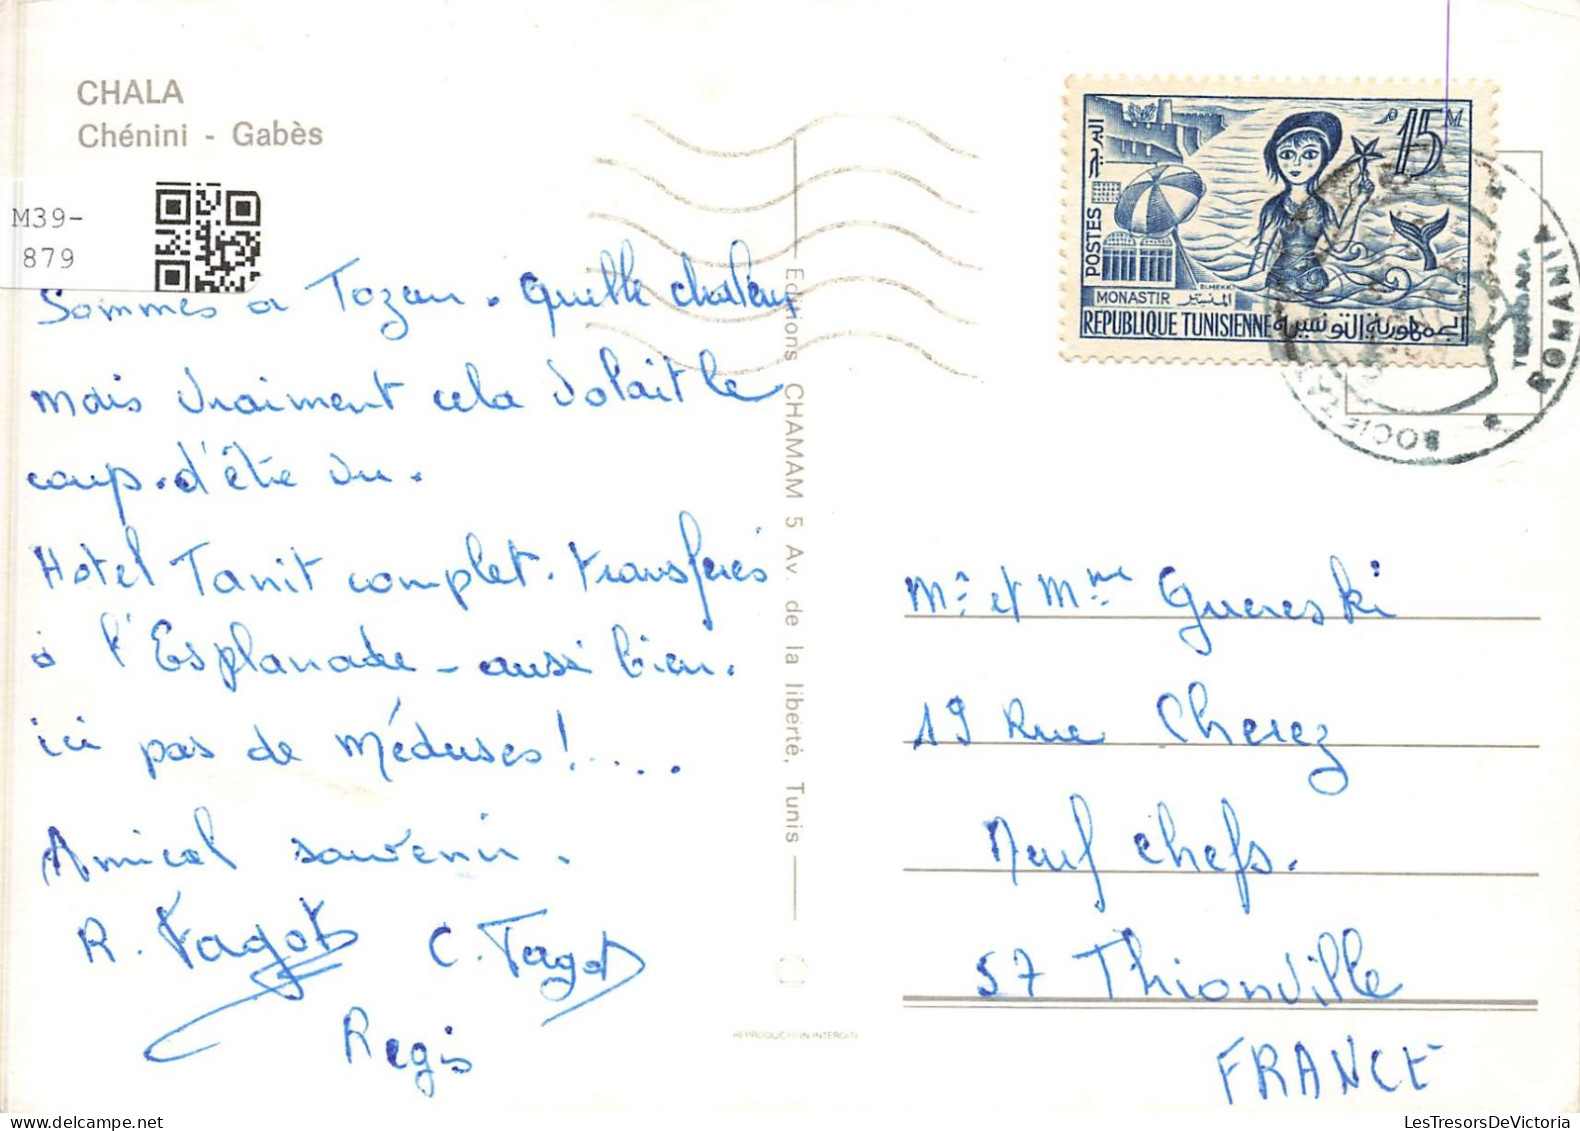 CHALA
Chénini - Gabès
M39-
879
Sommes a Tozeur. Quelle chaleur
mais vraiment cela valait le
coup. d'être vu.
Hotel Tanit complet. transferés
à l'Esplanade - aussi bien.
ici pas de Méduses!....
Amical souvenir.
R. Fagot C. Fagot
Regis
Editions CHAMAM 5 Av. de la liberté, Tunis
REPRODUCTION INTERDITE
15 M
البريد
POSTES
MONASTIR المنستير
ELMEKKI
REPUBLIQUE TUNISIENNE الجمهورية التونسية
ROMANIA
Mr et Mme Guereski
19 Rue Cherez
Neuf chefs.
57 Thionville
FRANCE
LesTresorsDeVictoria